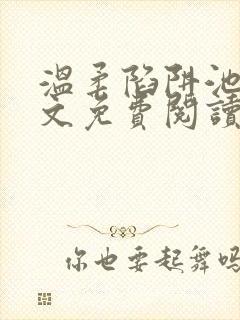 溫柔陷阱池
文免費閱讀
你也要起舞嗎